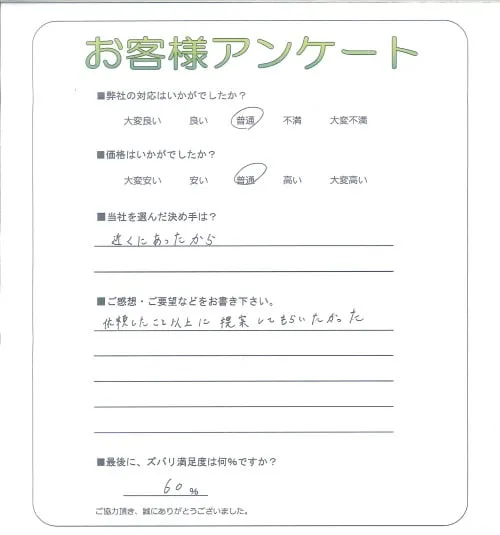 お客様アンケート
■弊社の対応はいかがでしたか?
大変良い 良い 普通 不満 大変不満
■価格はいかがでしたか?
大変安い 安い 普通 高い 大変高い
■当社を選んだ決め手は?
近くにあったから
■ご感想・ご要望などをお書き下さい。
依頼したこと以上に提案してもらいたかった
■最後に、ズバリ満足度は何%ですか?
60%
ご協力頂き、誠にありがとうございました。